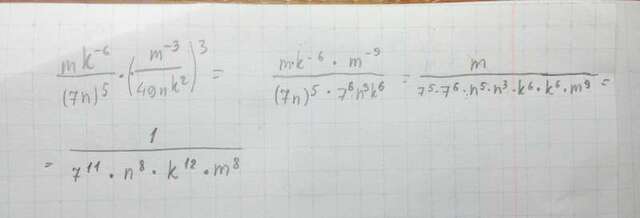 mk⁻⁶/(7n)⁵ · (m⁻³/49nk²)³ = m·k⁻⁶ · m⁻⁹/(7n)⁵ · 7⁶n³k⁶ = m/7⁵·7⁶·n⁵·n³·k⁶·k⁶·m⁹ =
= 1/7¹¹ · n⁸ · k¹² · m⁸